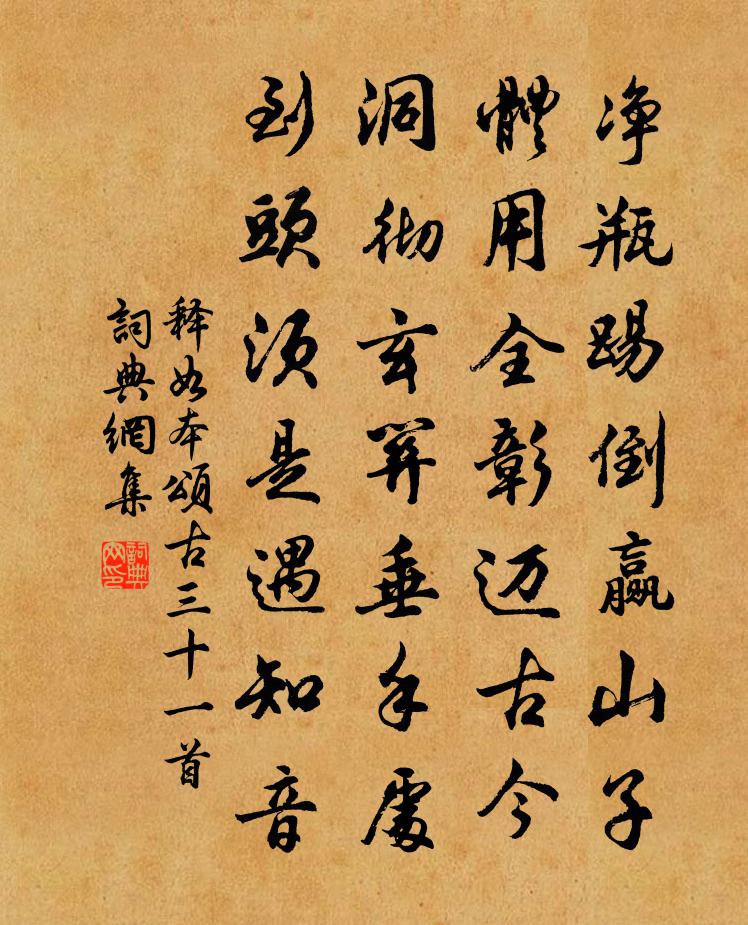 净瓶踢倒赢山子
體用全彰迈古今
洞彻玄關垂手處
到頭须是遇知音
释如本頌古三十一首
詞典網集
詞典網印